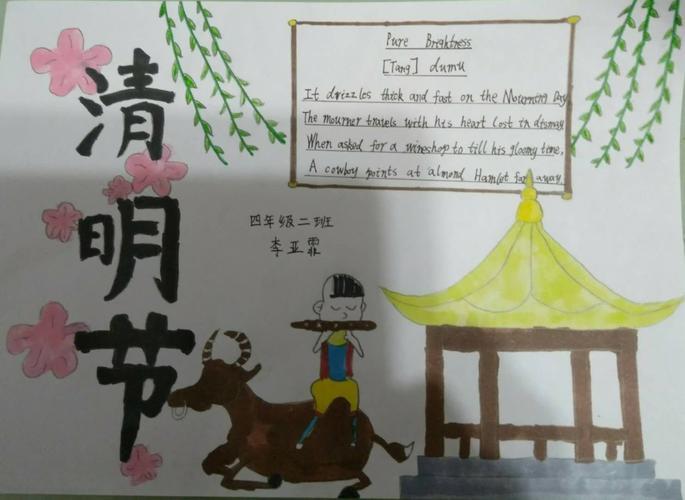 清明节
Pure Brightness
[Tang] dumu
It drizzles thick and fast on the Mourning Day
The mourner travels with his heart lost in dismay
When asked for a wineshop to till his gloomy time,
A cowboy points at almond Hamlet far away
四年级二班
李亚霏